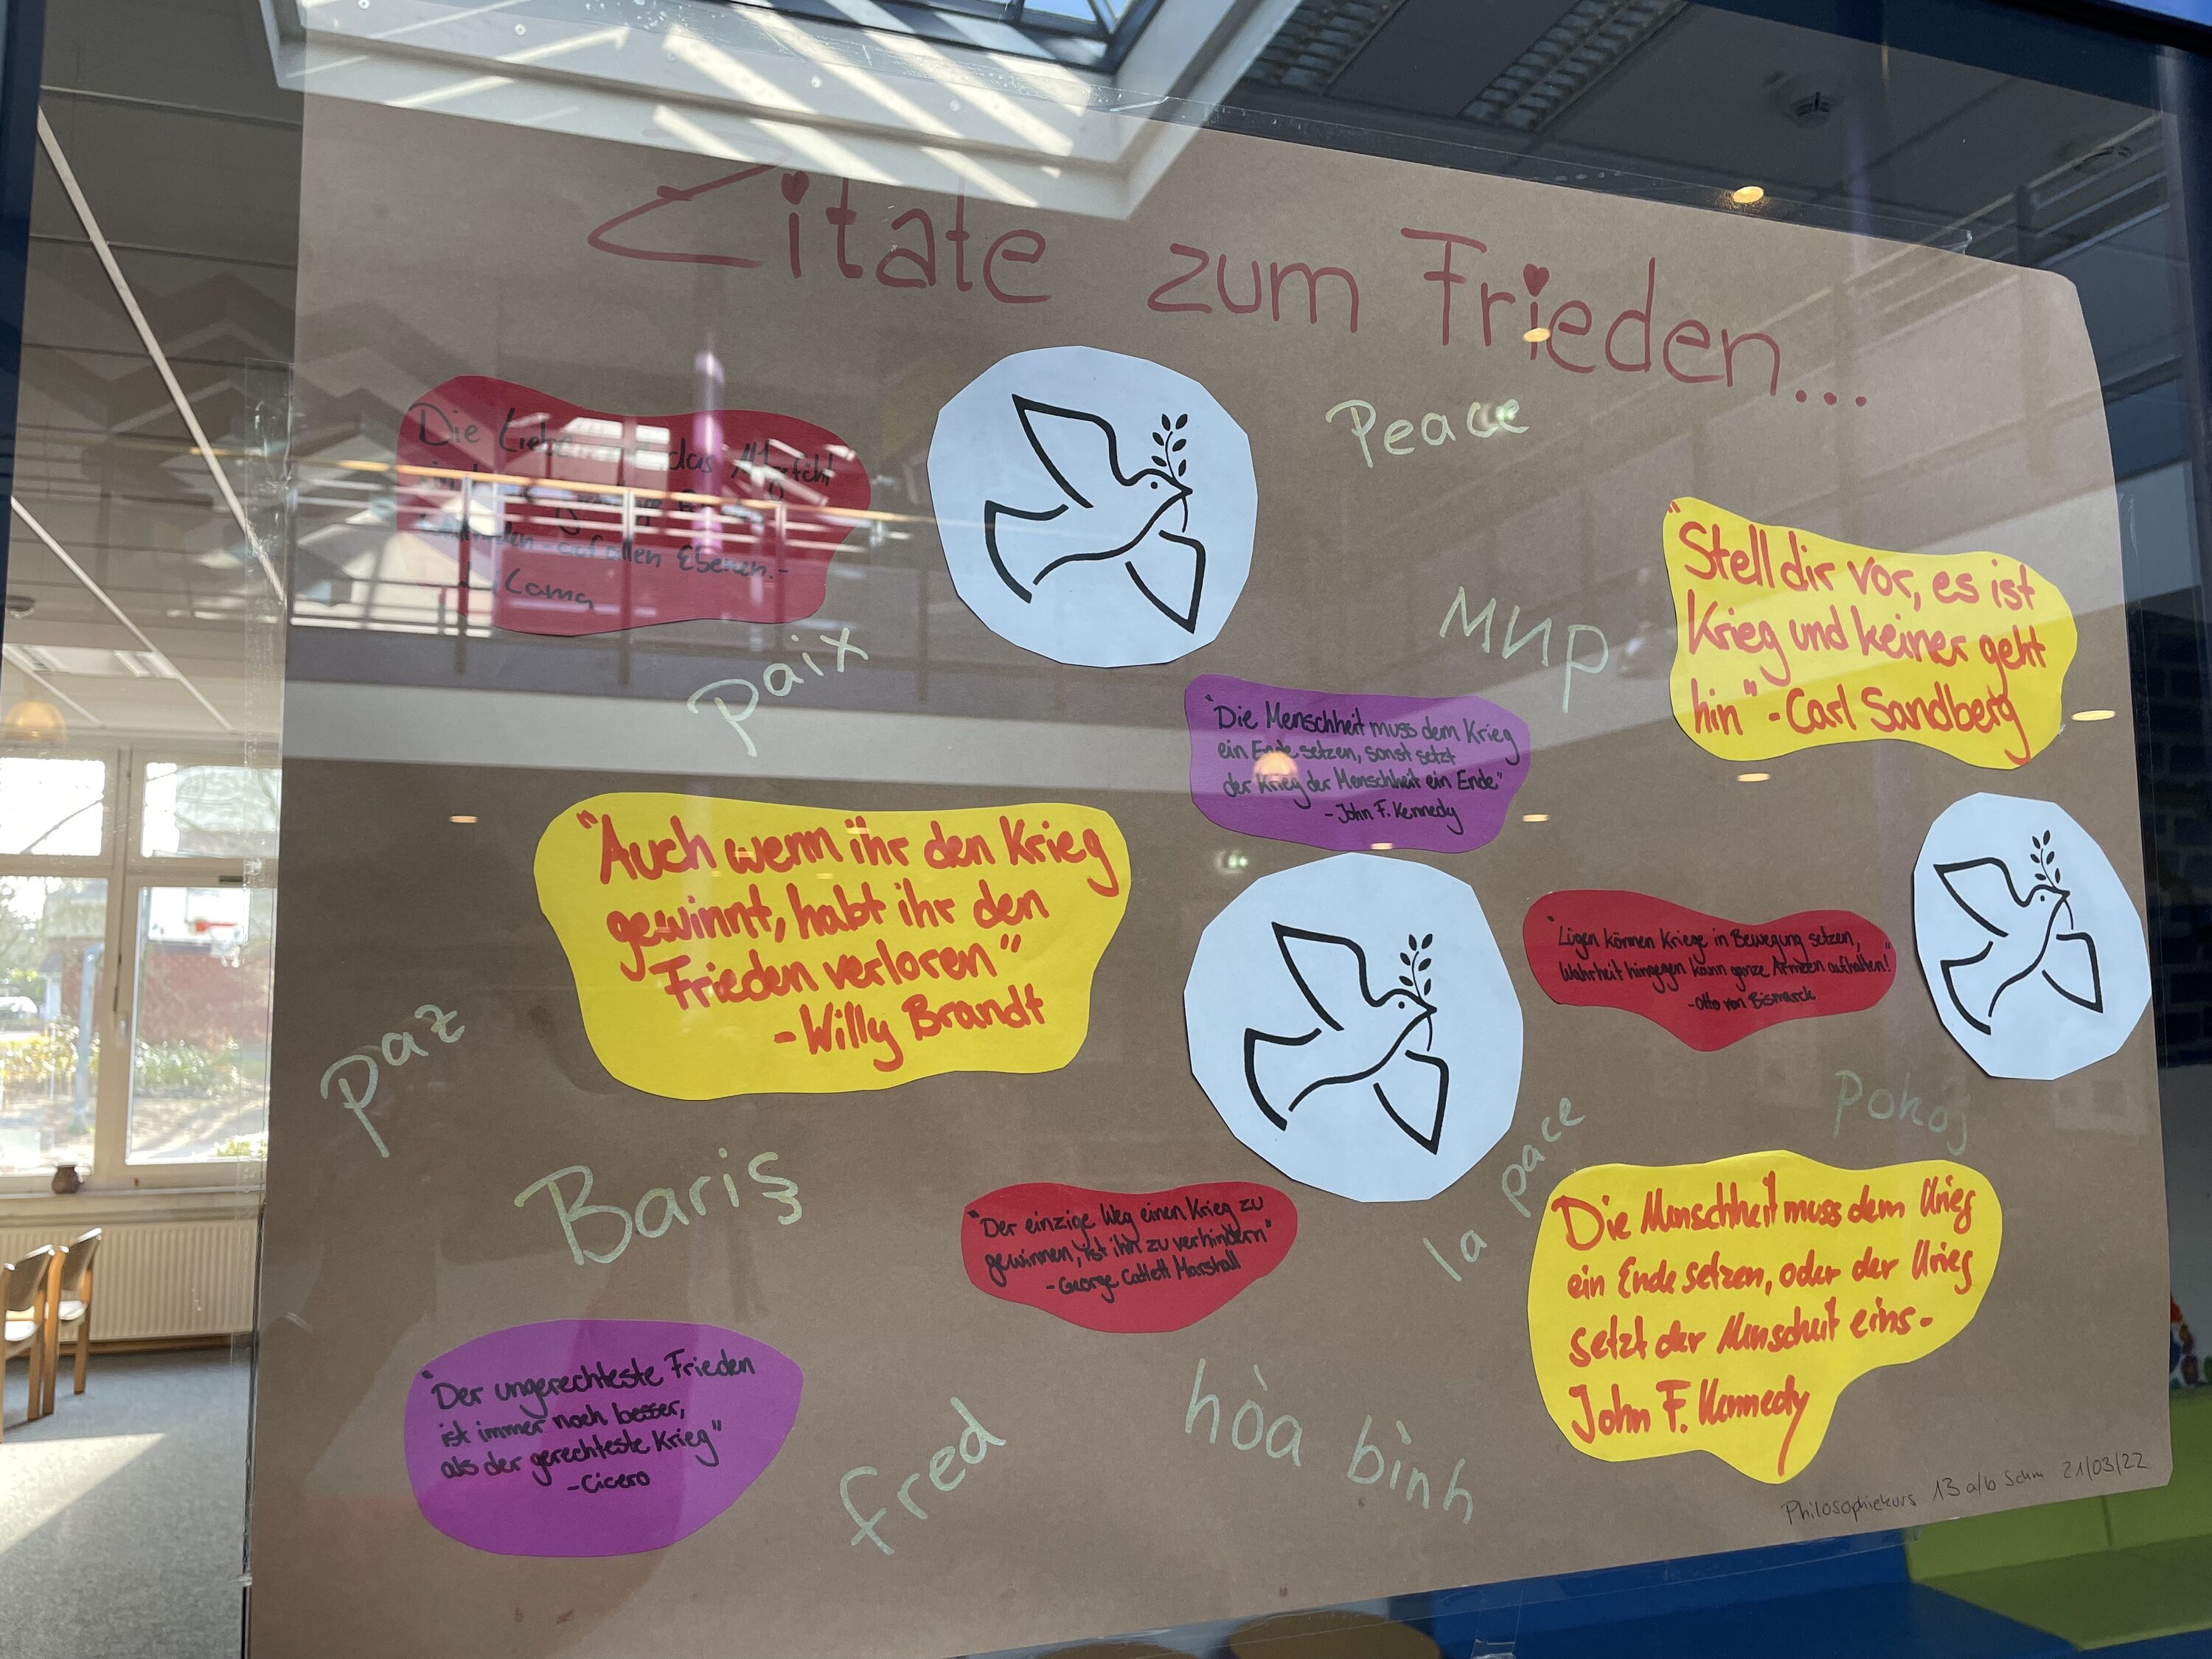 Zitate zum Frieden...
Die Liebe und das Mitgefühl
auf allen Ebenen.-
Lama
Peace
"Stell dir vor, es ist
Krieg und keiner geht
hin" - Carl Sandberg
мир
paix
"Die Menschheit muss dem Krieg
ein Ende setzen, sonst setzt
der Krieg der Menschheit ein Ende"
- John F. Kennedy
"Auch wenn ihr den Krieg
gewinnt, habt ihr den
Frieden verloren"
- Willy Brandt
"Lügen können Kriege in Bewegung setzen,
Wahrheit hingegen kann ganze Armeen aufhalten!"
- Otto von Bismarck
paz
pokój
la pace
Bariş
"Der einzige Weg einen Krieg zu
gewinnen, ist ihn zu verhindern"
- George Catlett Marshall
Die Menschheit muss dem Krieg
ein Ende setzen, oder der Krieg
setzt der Menscheit eins -
John F. Kennedy
"Der ungerechteste Frieden
ist immer noch besser,
als der gerechteste Krieg"
- Cicero
fred
hòa bình
Philosophiekurs 13 a/b Schm 21/03/22